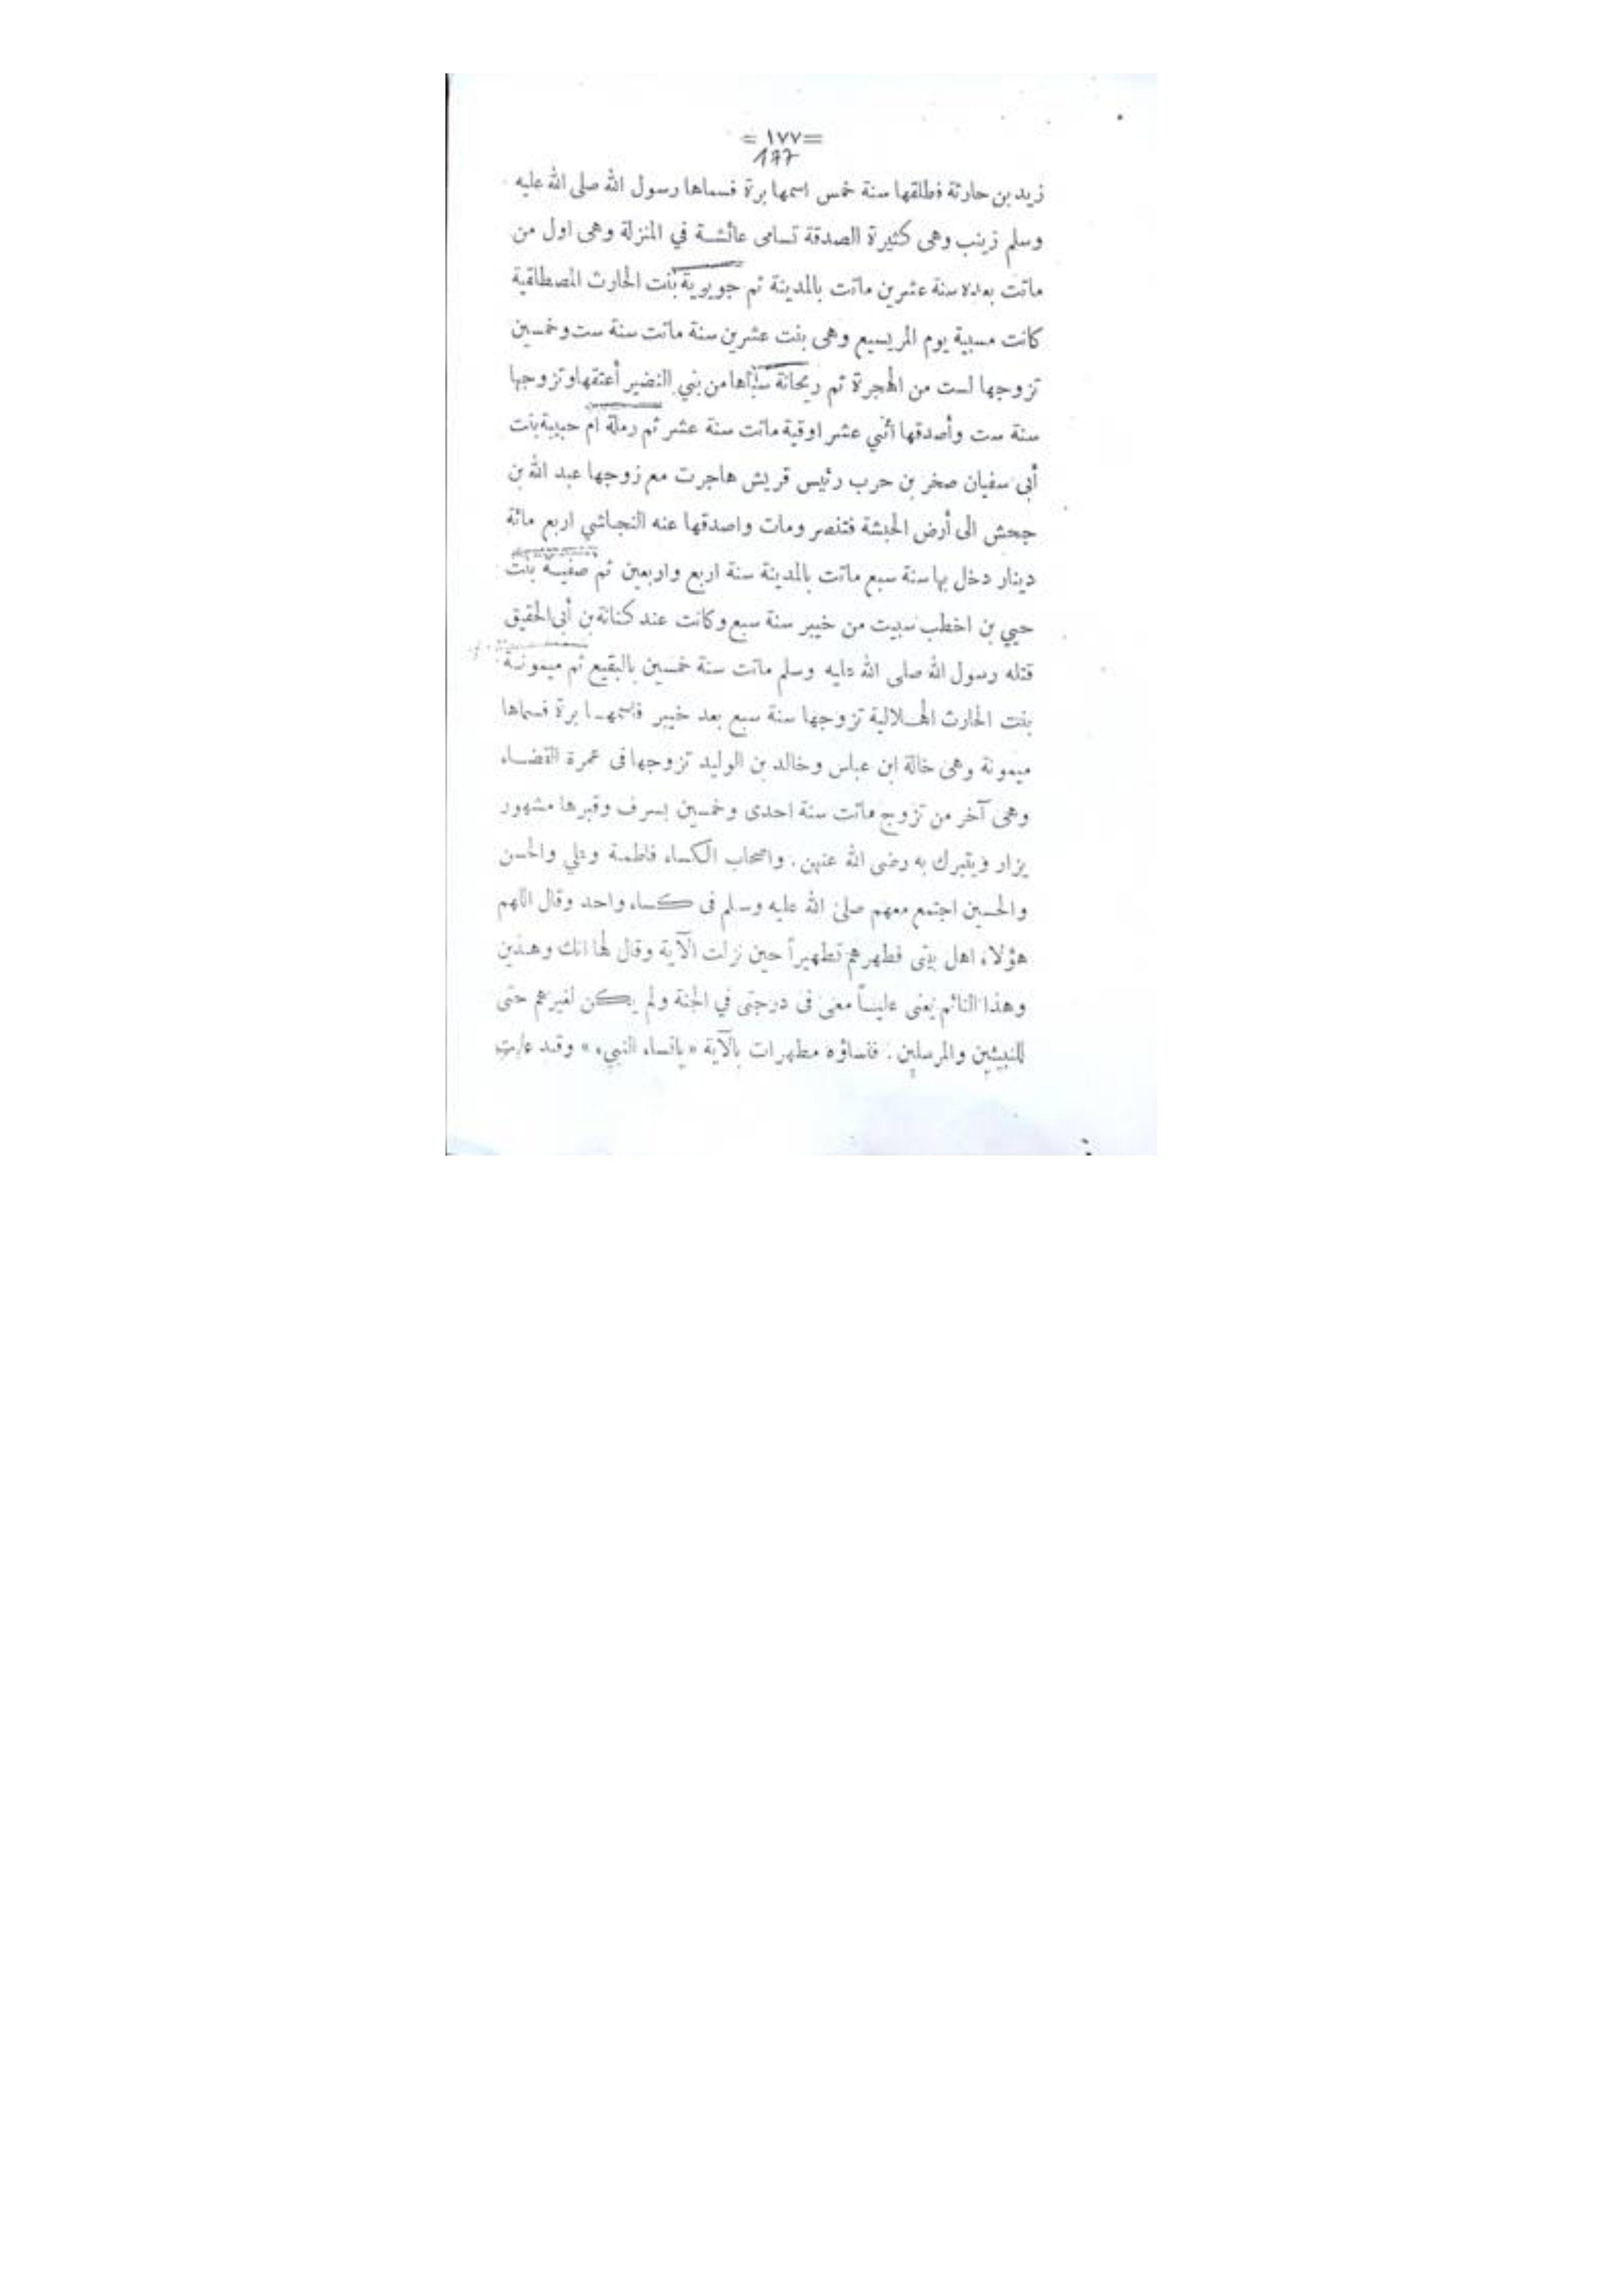 = ١٧٧ =
177
زيد بن حارثة فطلقها سنة خمس اسمها برة فسماها رسول الله صلى الله عليه
وسلم زينب وهى كثيرة الصدقة تسامى عائشة في المنزلة وهى اول من
ماتت بعده سنة عشرين ماتت بالمدينة ثم جويرية بنت الحارث المصطلقية
كانت مسبية يوم المريسيع وهى بنت عشرين سنة ماتت سنة ست وخمسين
تزوجها لست من الهجرة ثم ريحانة سباها من بني النضير أعتقها وتزوجها
سنة ست وأصدقها اثني عشر اوقية ماتت سنة عشر ثم رملة ام حبيبة بنت
أبى سفيان صخر بن حرب رئيس قريش هاجرت مع زوجها عبد الله بن
جحش الى أرض الحبشة فتنصر ومات واصدقها عنه النجاشي اربع مائة
دينار دخل بها سنة سبع ماتت بالمدينة سنة اربع واربعين ثم صفية بنت
حيي بن اخطب سبيت من خيبر سنة سبع وكانت عند كنانة بن أبى الحقيق
قتله رسول الله صلى الله عليه وسلم ماتت سنة خمسين بالبقيع ثم ميمونة
بنت الحارث الهلالية تزوجها سنة سبع بعد خيبر فاسمها برة فسماها
ميمونة وهى خالة ابن عباس وخالد بن الوليد تزوجها فى عمرة القضاء
وهى آخر من تزوج ماتت سنة احدى وخمسين بسرف وقبرها مشهور
يزار ويتبرك به رضى الله عنهن . واصحاب الكساء فاطمة وعلي والحسن
والحسين اجتمع معهم صلى الله عليه وسلم فى كساء واحد وقال اللهم
هؤلاء اهل بيتى فطهرهم تطهيراً حين نزلت الآية وقال لها انك وهذين
وهذا النائم يعنى علياً معى فى درجتى في الجنة ولم يكن لغيرهم حتى
للنبيئين والمرسلين . فنساؤه مطهرات بالآية « يانساء النبيء » وقد